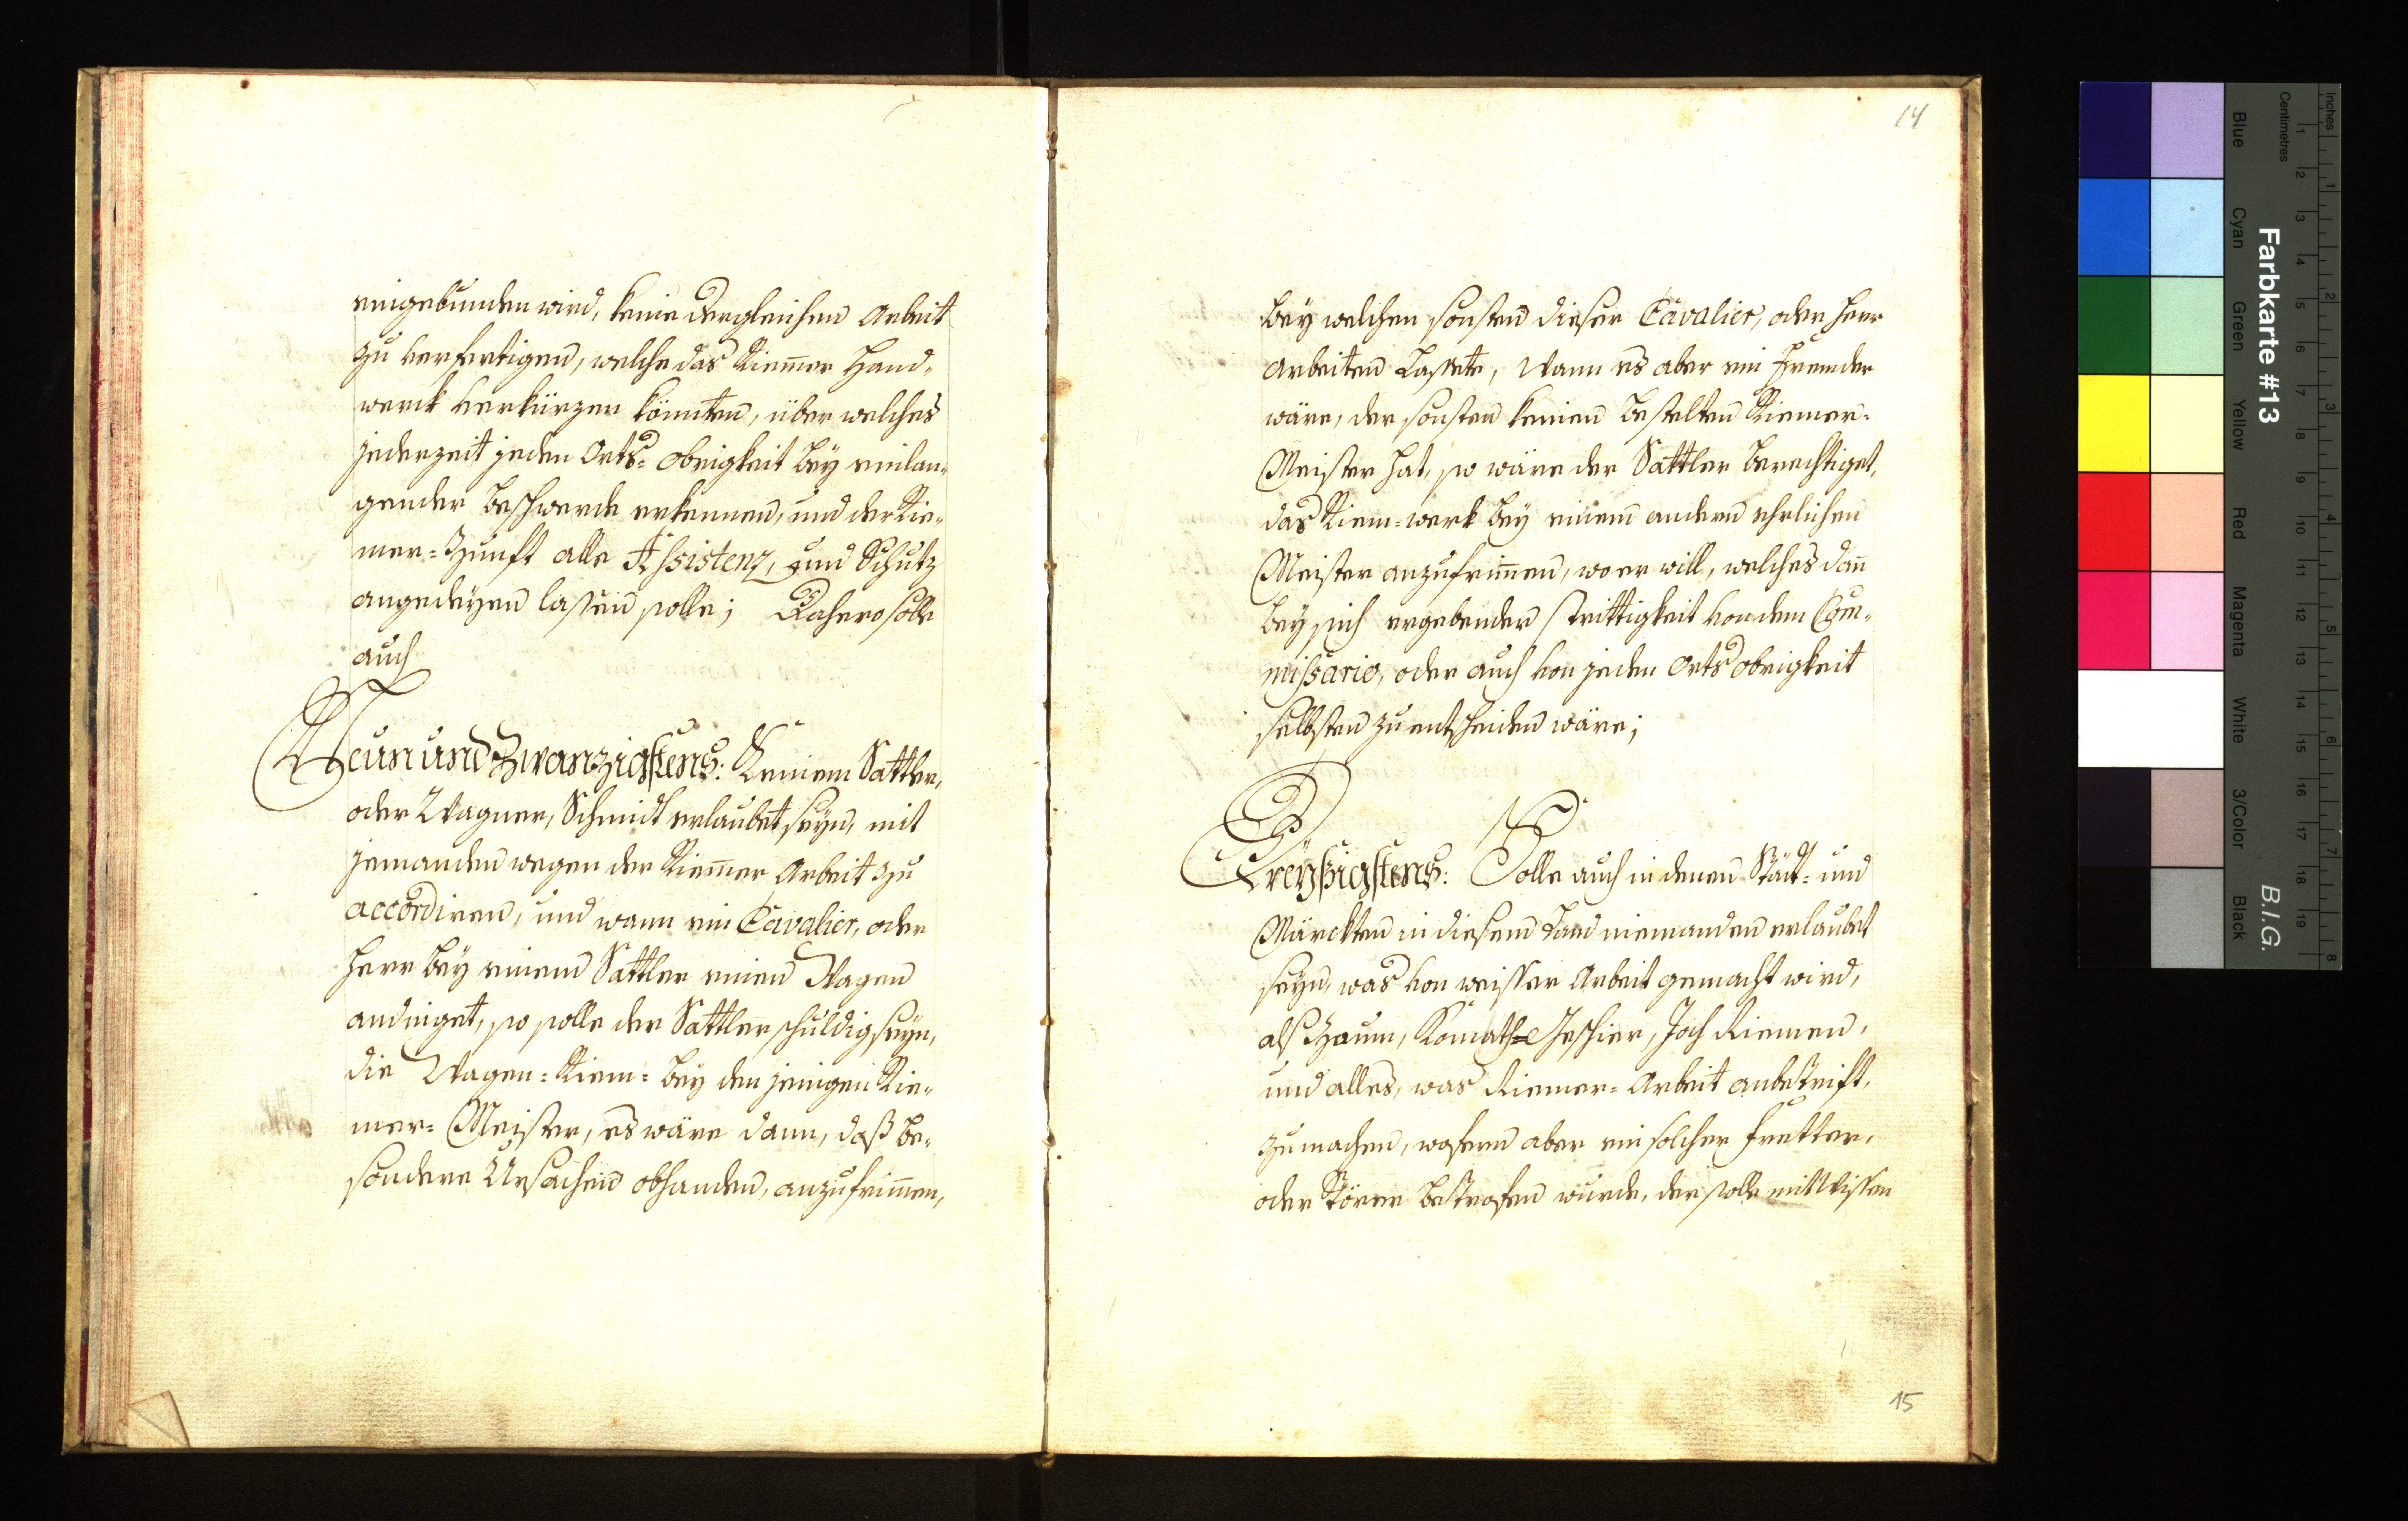 eingebunden wird, keine dergleichen Arbeit
zu verfertigen, welche das Riem̄er Hand-
werck verkürzen könnten, über welches
jederzeit jeden Orts-obrigkeit bey einlan-
gender beschwerde erkennen, und der Rie-
mer-Zunft alle Assistenz, und Schutz
angedeyen lassen solle; Dahero solle
auch
Neun und Zwanzigstens: Keinem Sattler,
oder Wagner, Schmidt erlaubet seyn, mit
jemanden wegen der Riem̄er Arbeit zu
accordiren, und wann ein Cavalier, oder
Herr bey einem Sattler einen Wagen
andinget, so solle der Sattler schuldig seyn,
die Wagen-Riem- bey den jenigen Rie-
mer-Meister, es wäre dann, daß be-
sondere Ursachen obhanden, anzufrim̄en,
14
bey welchen sonsten dieser Cavalier, oder Herr
arbeiten Lassete, Wann es aber ein Fremder
wäre, der sonsten keinen bestelten Riemer-
Meister hat, so wäre der Sattler berechtiget,
das Riem-werk bey einem andern ehrlichen
Meister anzufrim̄en, wo er will, welches dan̄
bey sich ergebender strittigkeit von dem Com̄-
missario, oder auch von jeden Orts obrigkeit
selbsten zu entscheiden wäre;
Dreyßigstens: Solle auch in denen Stätt- und
Märckten in diesem Land niemanden erlaubet
seyn, was von weisser Arbeit gemacht wird,
als Zaum, Komath-Geschier, Joch Riemen,
und alles, was Riemer-Arbeit anbetrift,
zu machen, wofern aber ein solcher Fretter,
oder Störer betrofen wurde, der solle mit Wissen
15
Farbkarte #13
B.I.G.
Blue Cyan Green Yellow Red Magenta White 3/Color Black
Centimetres 1 2 3 4 5 6 7 8 9 10 11 12 13 14 15 16 17 18 19
Inches 1 2 3 4 5 6 7 8